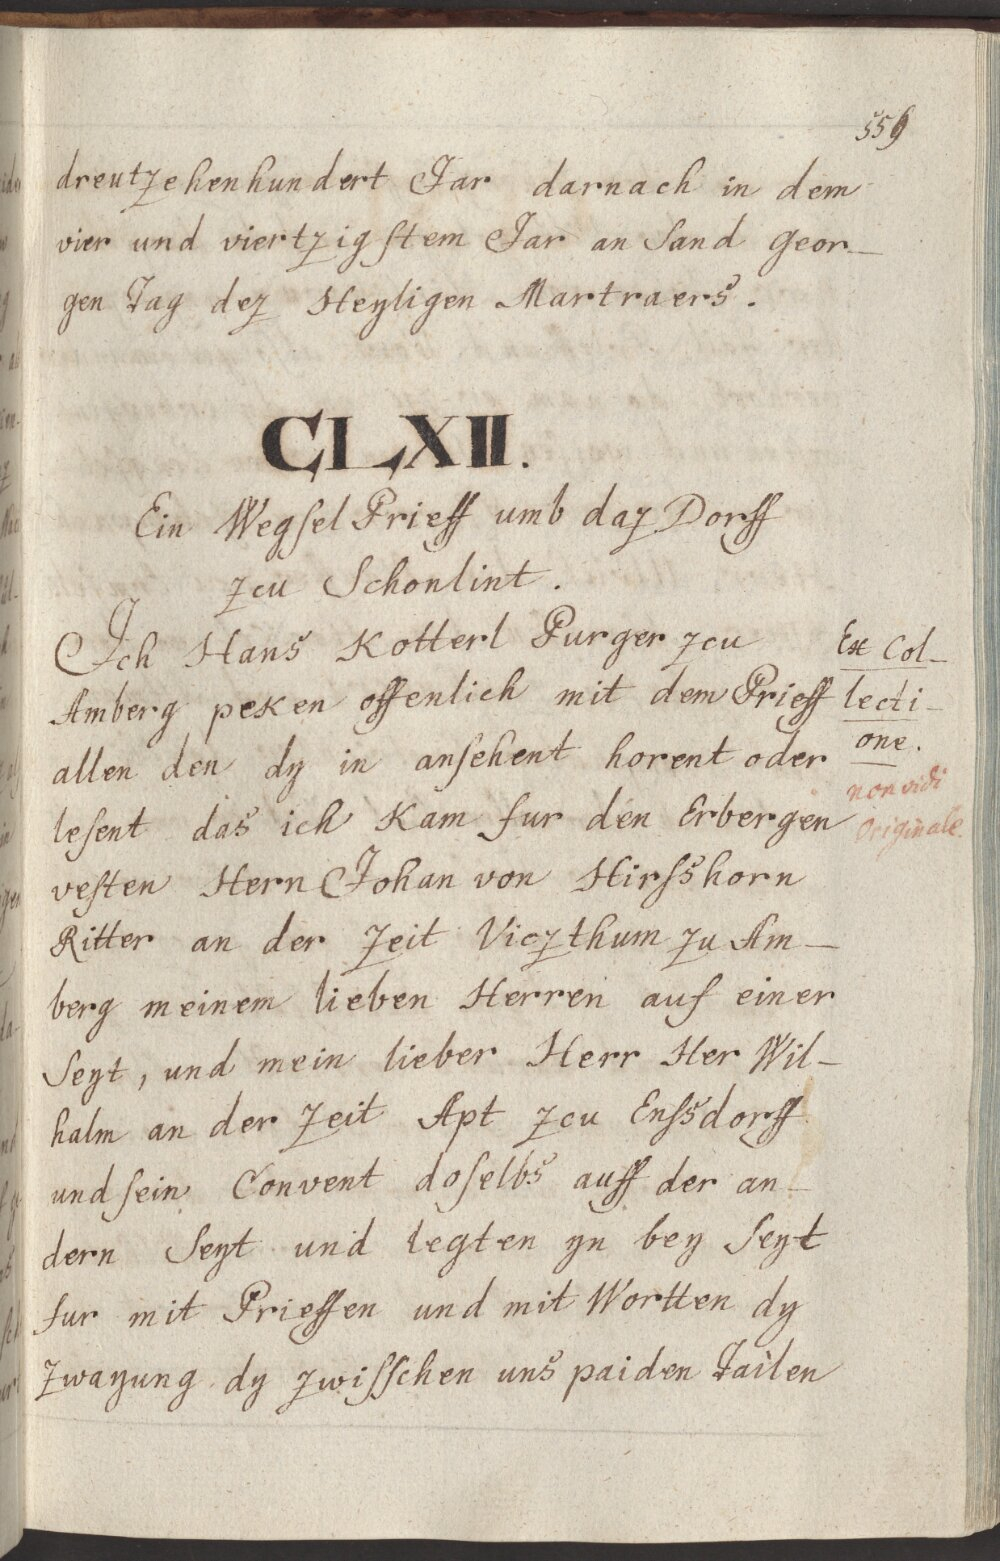 559
dreutzehenhundert Jar darnach in dem
vier und viertzigstem Jar an Sand Geor-
gen Tag dez Heyligen Martraers.
CLXII.
Ein Wegsel Prieff umb daz Dorff
zcu Schonlint.
Ich Hans Kotterl Purger zcu
Amberg peken offenlich mit dem Prieff
allen den dy in ansehent horent oder
lesent das ich kam fur den Erbergen
vesten Hern Johan von Hirsshorn
Ritter an der Zeit Viczthum zu Am-
berg meinem lieben Herren auf einer
Seyt, und mein lieber Herr Her Wil-
halm an der Zeit Apt zcu Enssdorff
und sein Convent doselbs auff der an-
dern Seyt und legten yn bey Seyt
fur mit Prieffen und mit Wortten dy
Zwayung dy zwisschen uns paiden Tailen
Ex Col-
lecti-
one.
non vidi
Originale